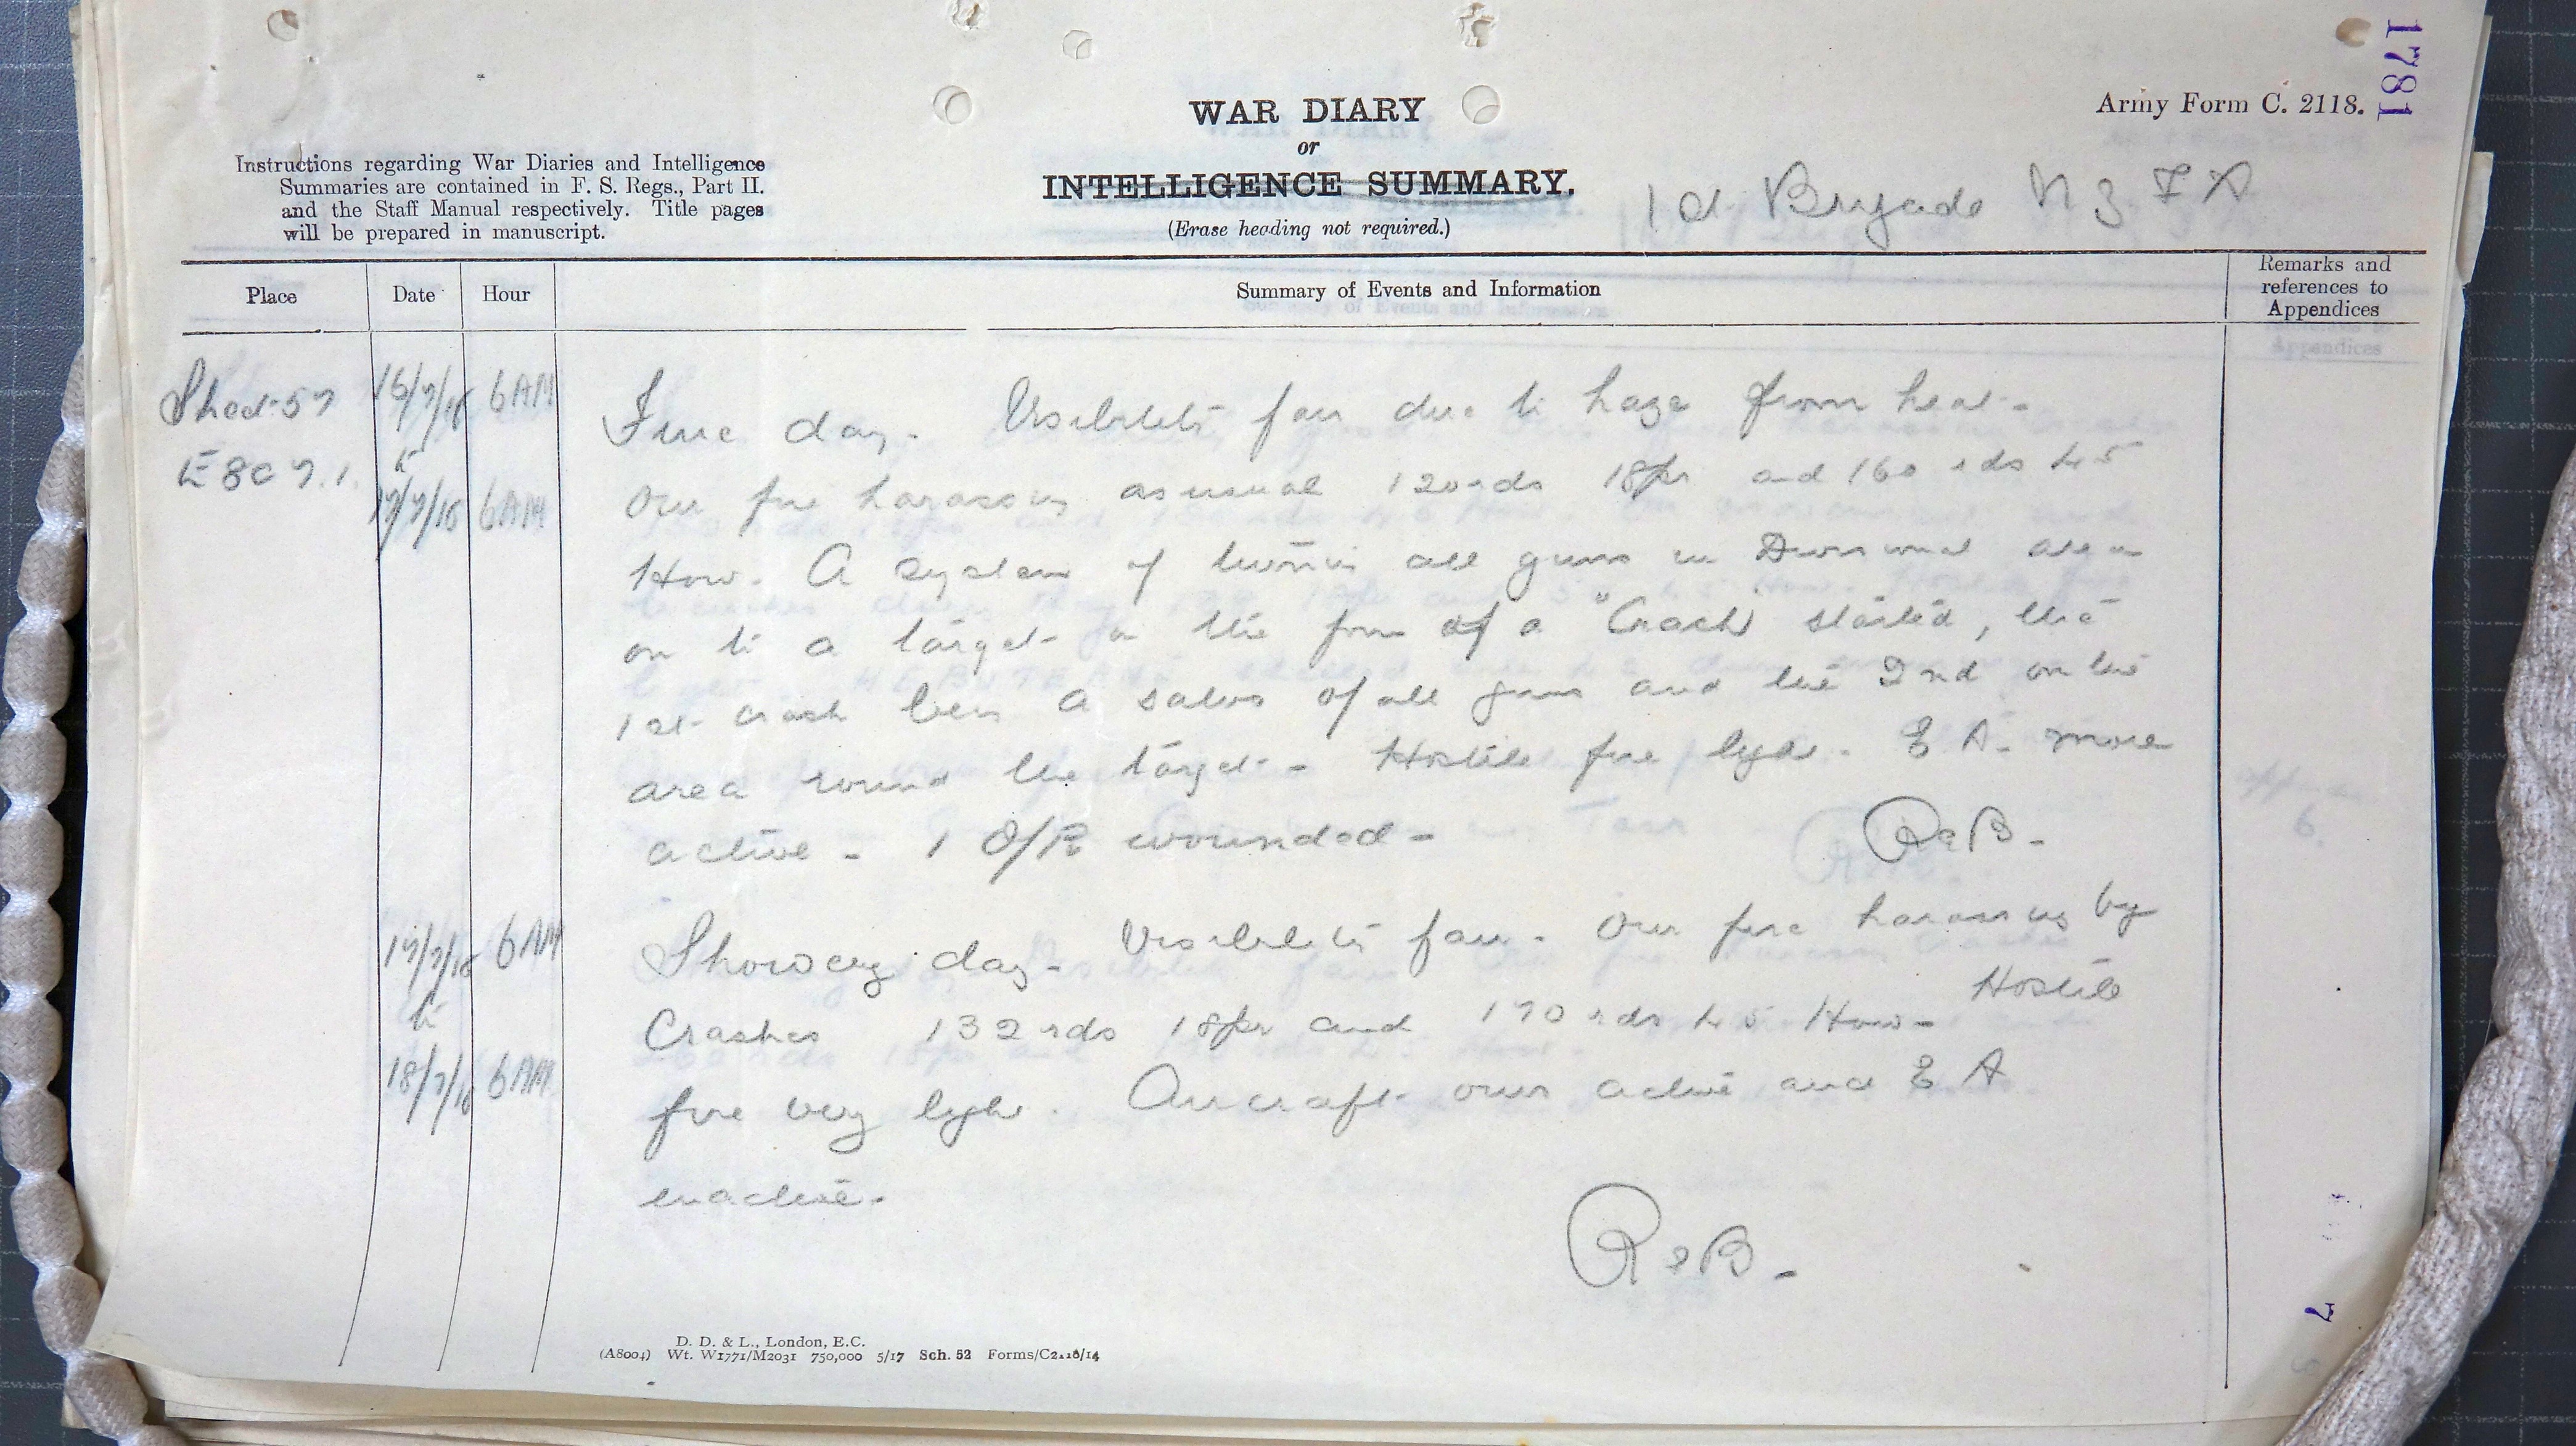 1781
Army Form C. 2118.
WAR DIARY
or
INTELLIGENCE SUMMARY.
(Erase heading not required.)
Instructions regarding War Diaries and Intelligence
Summaries are contained in F. S. Regs., Part II.
and the Staff Manual respectively. Title pages
will be prepared in manuscript.
1st Brigade N Z F A
Place
Date
Hour
Summary of Events and Information
Remarks and
references to
Appendices
Sheet 57
E 8 c 7.1.
16/7/18 6AM
to
17/7/18 6AM
Fine day. Visibility fair due to haze from heat.
Our fire harassing as usual 120 rds 18pr and 160 rds 4.5
How. A system of turning all guns in Divisional area
on to a target in the form of a "Crash" started, the
1st crash being a salvo of all guns and the 2nd on the
area round the target. Hostile fire light. E A. more
active. 1 O/R wounded.
ReB.
6.
17/7/18 6AM
to
18/7/18 6AM
Showery day. Visibility fair. Our fire harassing by
Crashes 132 rds 18pr and 170 rds 4.5 How. Hostile
fire very light. Aircraft ours active and E A
inactive.
ReB.
7
D. D. & L., London, E.C.
(A8004) Wt. W1771/M2031 750,000 5/17 Sch. 52 Forms/C2118/14